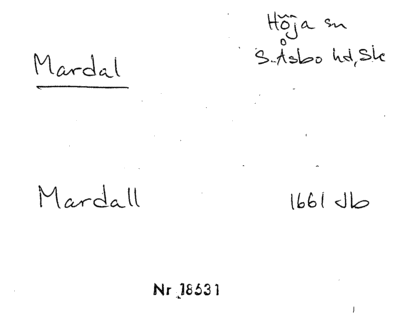 Höja sn
Mardal
S. Åsbo hd, Sk
Mardall
1661 Jb
Nr 18531